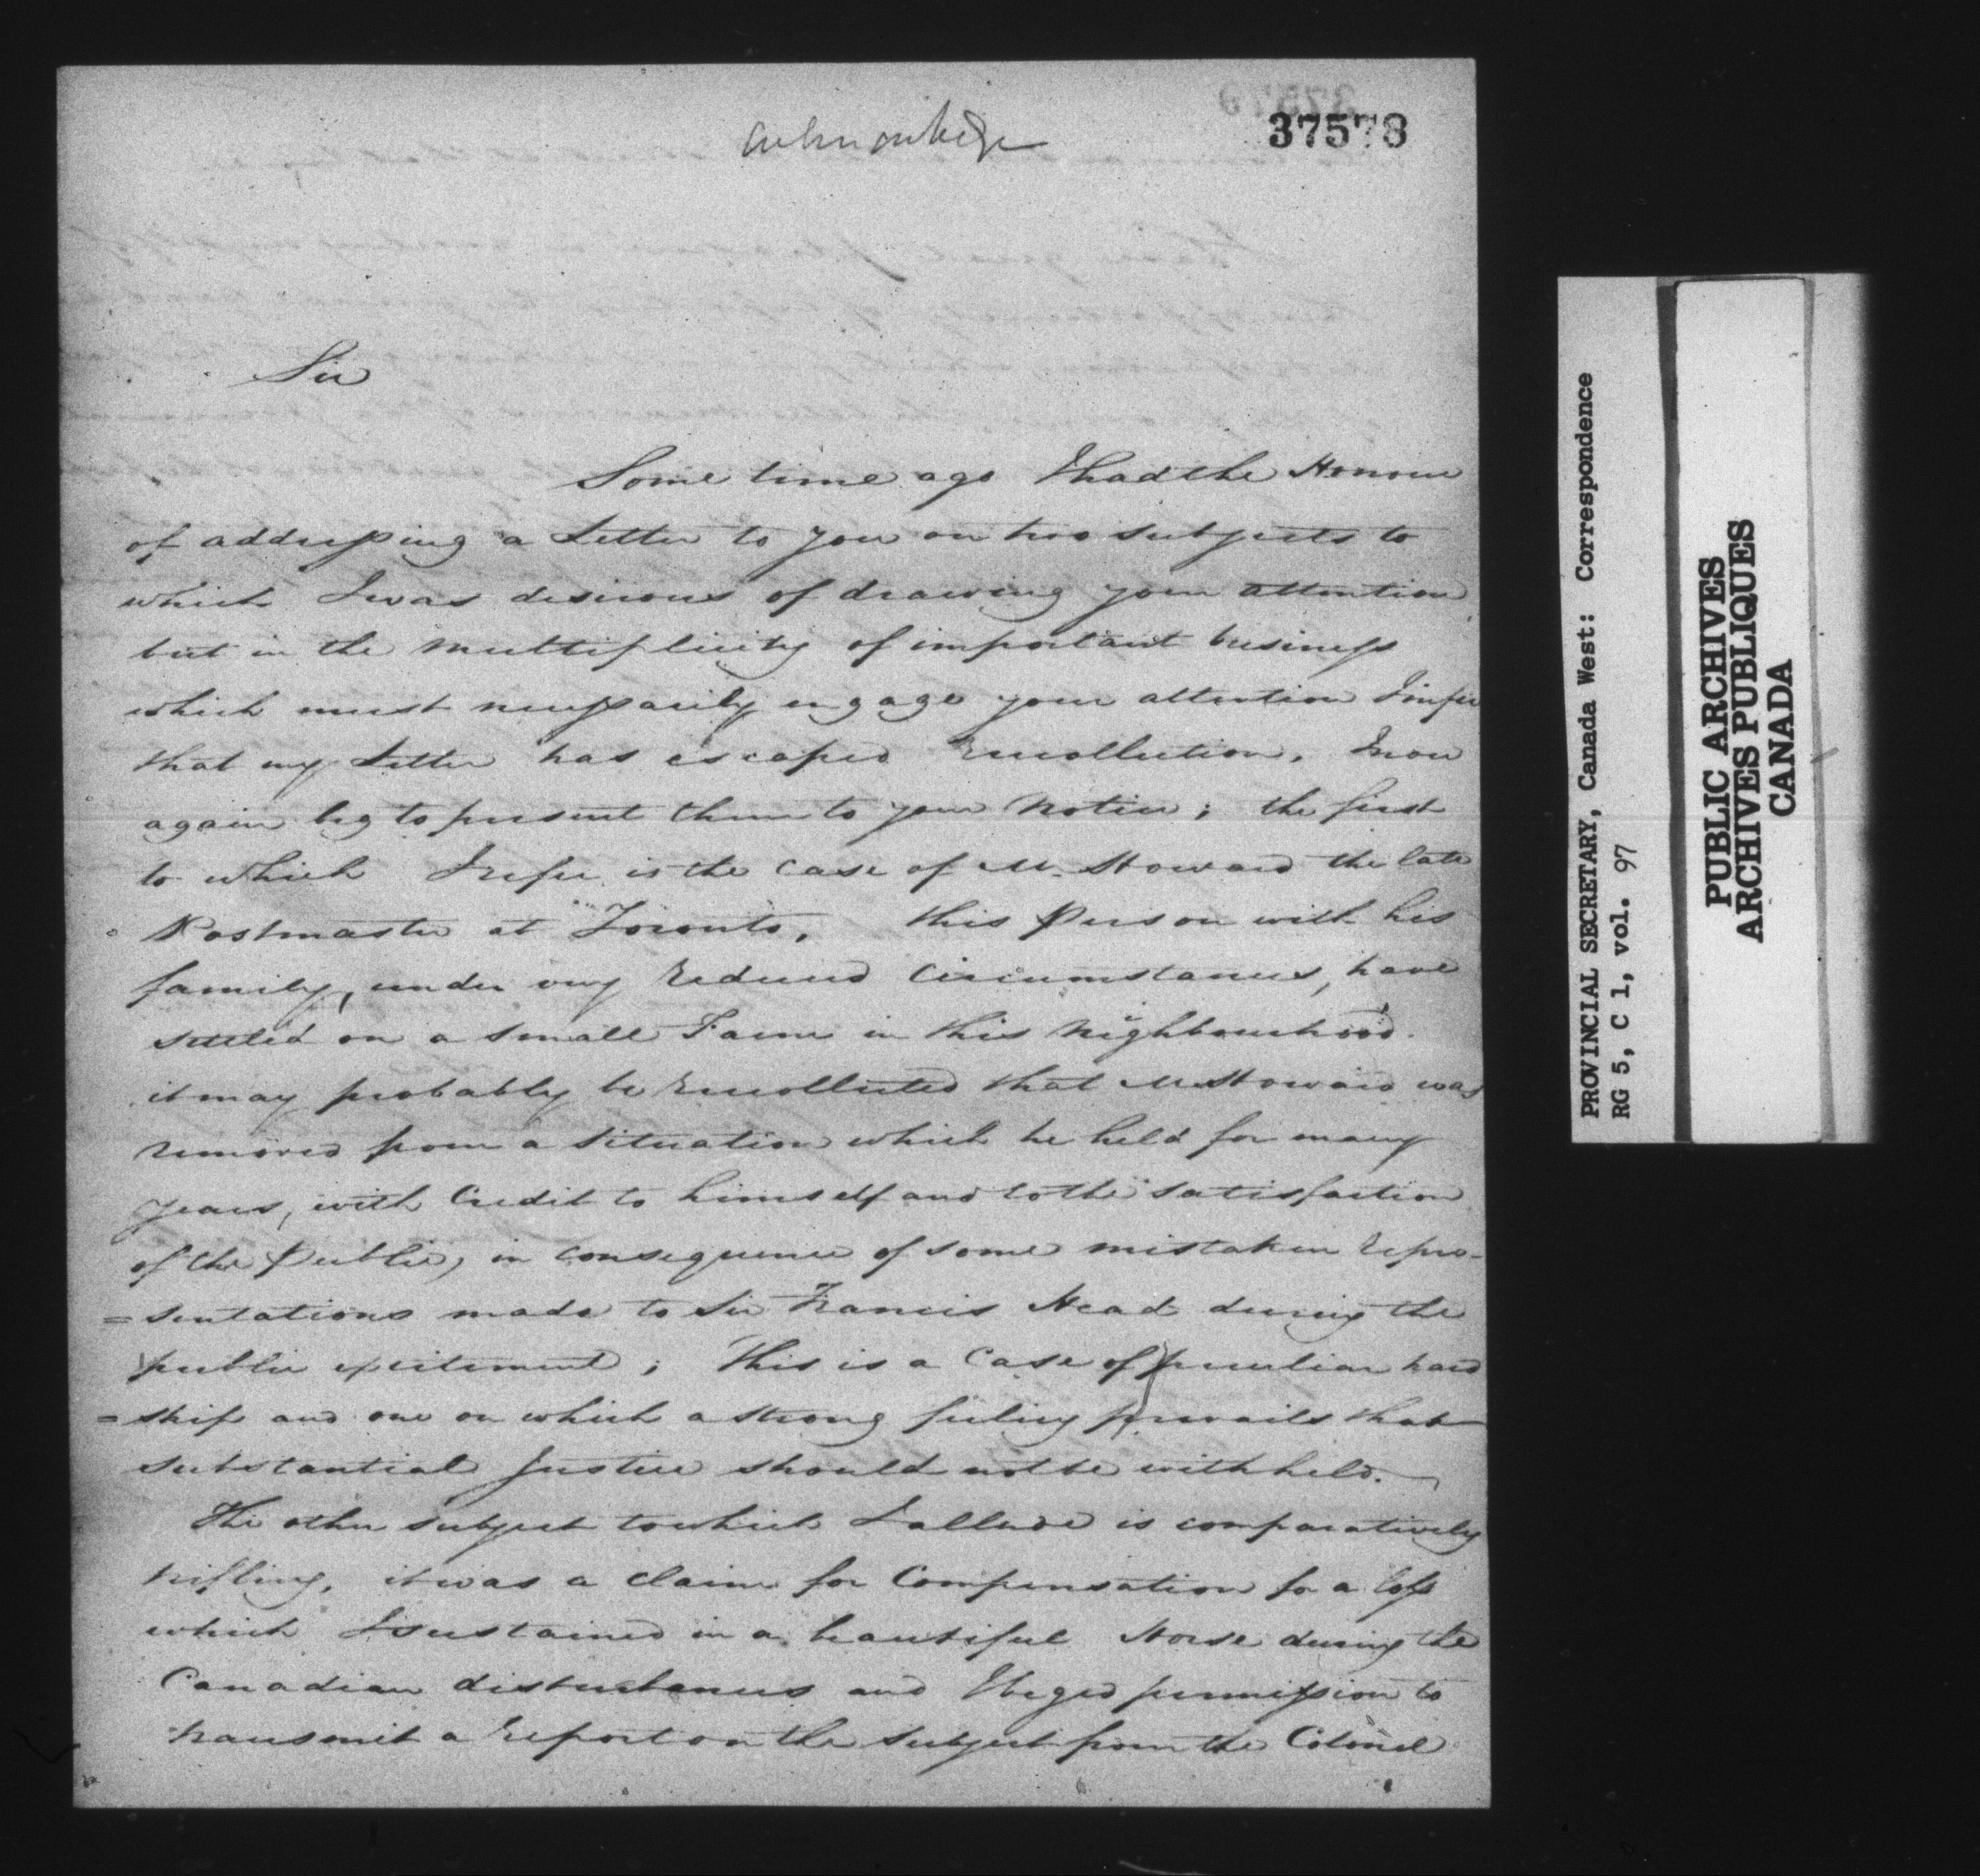 acknowledge
37578
Sir
Some time ago I had the Honour
of addressing a Letter to you on two subjects to
which I was desirous of drawing your attention
but in the multiplicity of important business
which must necessarily engage your attention I infer
that my Letter has escaped recollection. I now
again beg to present them to your notice; the first
to which I refer is the case of Mr. Howard the late
Postmaster at Toronto, this Person with his
family, under very reduced circumstances, have
settled on a small Farm in this Neighbourhood.
it may probably be recollected that Mr. Howard was
removed from a situation which he held for many
years, with Credit to himself and to the satisfaction
of the Public, in consequence of some mistaken repre-
=sentations made to Sir Francis Head during the
public excitement; this is a Case of peculiar hard
=ship and one on which a strong feeling prevails that
substantial Justice should not be withheld.
The other subject to which I allude is comparatively
trifling, it was a claim for Compensation for a loss
which I sustained in a beautiful Horse during the
Canadian disturbances and I beged permission to
transmit a report on the subject from the Colonel
PROVINCIAL SECRETARY, Canada West: Correspondence
RG 5, C 1, vol. 97
PUBLIC ARCHIVES
ARCHIVES PUBLIQUES
CANADA